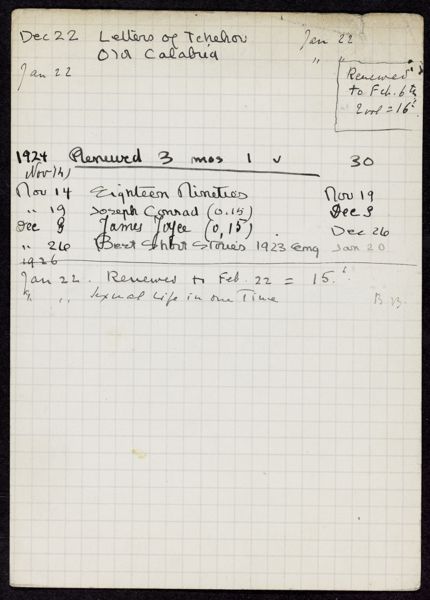 Dec 22 Letters of Tchehov Jan 22
Old Calabria " "
Jan 22 Renewed
to Feb. 6th
2 vol = 16
1924 Renewed 3 mos 1 v 30
Nov 14
Nov 14 Eighteen Nineties Nov 19
" 19 Joseph Conrad (0.15) Dec 9
Dec 9 James Joyce (0,15) Dec 26
" 26 Best Short Stories 1923 Eng Jan 20
1926
Jan 22. Renewed to Feb. 22 = 15.
" " Sexual Life in our Time B.B.